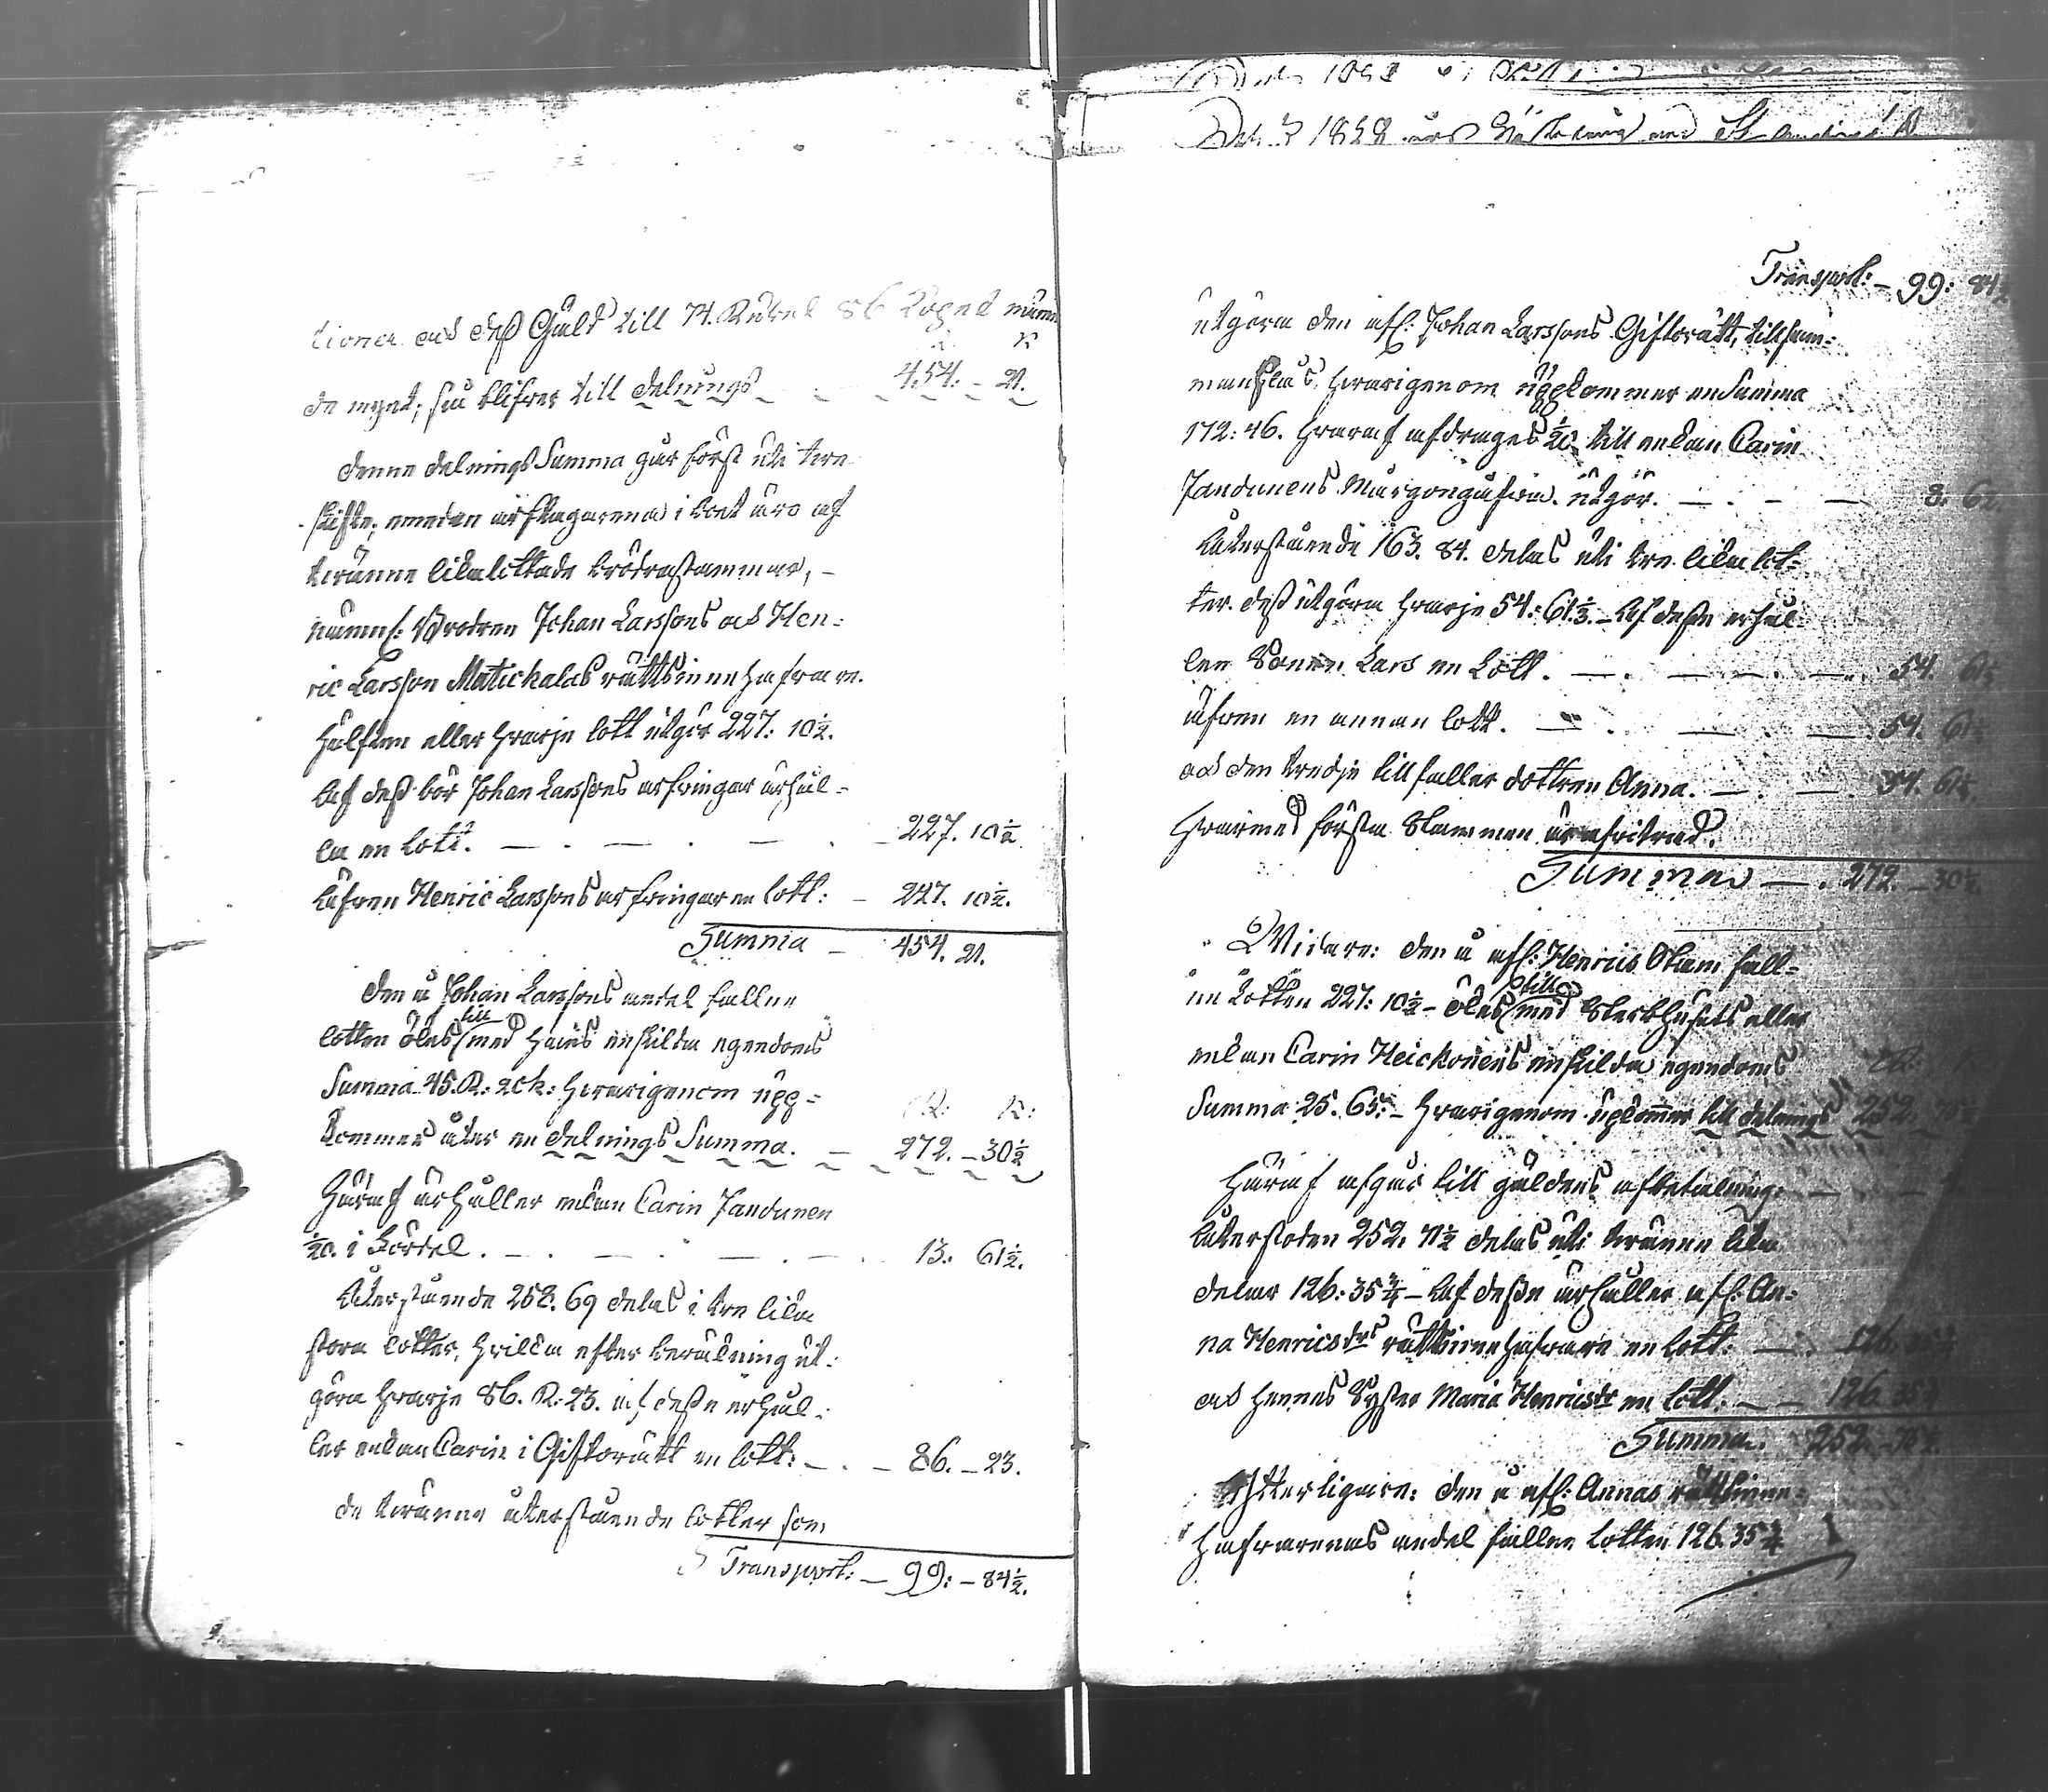 tioner och dess Gäld till 74. Rubel 86 Kopek numme
de myat; så blifver till delnings — 454. — 21.
Denne delnings Summa går först uti tve
skifte, emedan arftagarena i boet äro af
tvänne likalottade brödrastammar, —
nämnl: Brodren Johan Larssons och Hen-
ric Larsson Matickalas rättsinnehafvare.
Hälften eller hvarje lott utgör 227: 10½.
Af dess bör Johan Larssons arfvingar ärhål-
la en lott. — . — . — . — 227. 10½
Äfven Henric Larssons arfvingar en lott: — 227. 10½.
Summa — 454. 21.
Den å Johan Larssons andel fallne
lotten ökes till med hans enskilda egendoms
Summa 45. R: 20 k: hvarigenom upp-
R: K:
kommer åter en delnings Summa. — 272. — 30½
Häraf ärhåller enkan Carin Jandunen
1/20. i Fördel. — . — . — . — 13. 61½.
Återstående 258. 69 delas i tre lika
stora lotter, hvilka efter beräkning ut-
göra hvarje 86. R: 23. af desse erhål-
ler enkan Carin i Giftorätt en lott: — . — 86. — 23.
de tvänne återstående lotter som
Transport: — 99: — 84½.
Transport: — 99: 84½
utgöra den afl: Johan Larssons Giftorätt, tillsam-
manslås, hvarigenom uppkommer en Summa
172: 46. hvaraf afdrages 1/20 till enkan Carin
Jandunens Morgongåfva. utgör. — . — . — 8. 62.
Återstående 163. 84. delas uti tre lika lot-
ter. dess utgöra hvarje 54: 61⅓. — Af desse erhål-
ler Sonen Lars en Lott. — . — . — 54. 61⅓
äfven en annan lott. — . — . — 54. 61⅓
och den tredje tillfaller dottren Anna. — . — . 54. 61⅓.
Hvarmed första Stammen är afvitrad.
Summa — . 272. — 30½.
Widare: den å afl: Henrics Stam fall-
ne Lotten 227: 10½ — ökes till med Sterbhusets eller
enkan Carin Heickonens enskilda egendoms
Summa 25. 65: — hvarigenom upkommer till delnings 252
Häraf afgår till gäldens afbetalning. — —
Återstoden 252. 71½ delas uti tvänne lika
delar 126: 35¾ — Af desse ärhåller afl: An-
na Henricsdrs rättsinnehafvare en lott: — . 126.
och hennes Syster Maria Henricsdr en lott. — — 126. 35¾
Summa. 252.
Ytterligare: den å afl: Annas rättsinne-
hafvarenas andel fallne lotten 126. 35¾